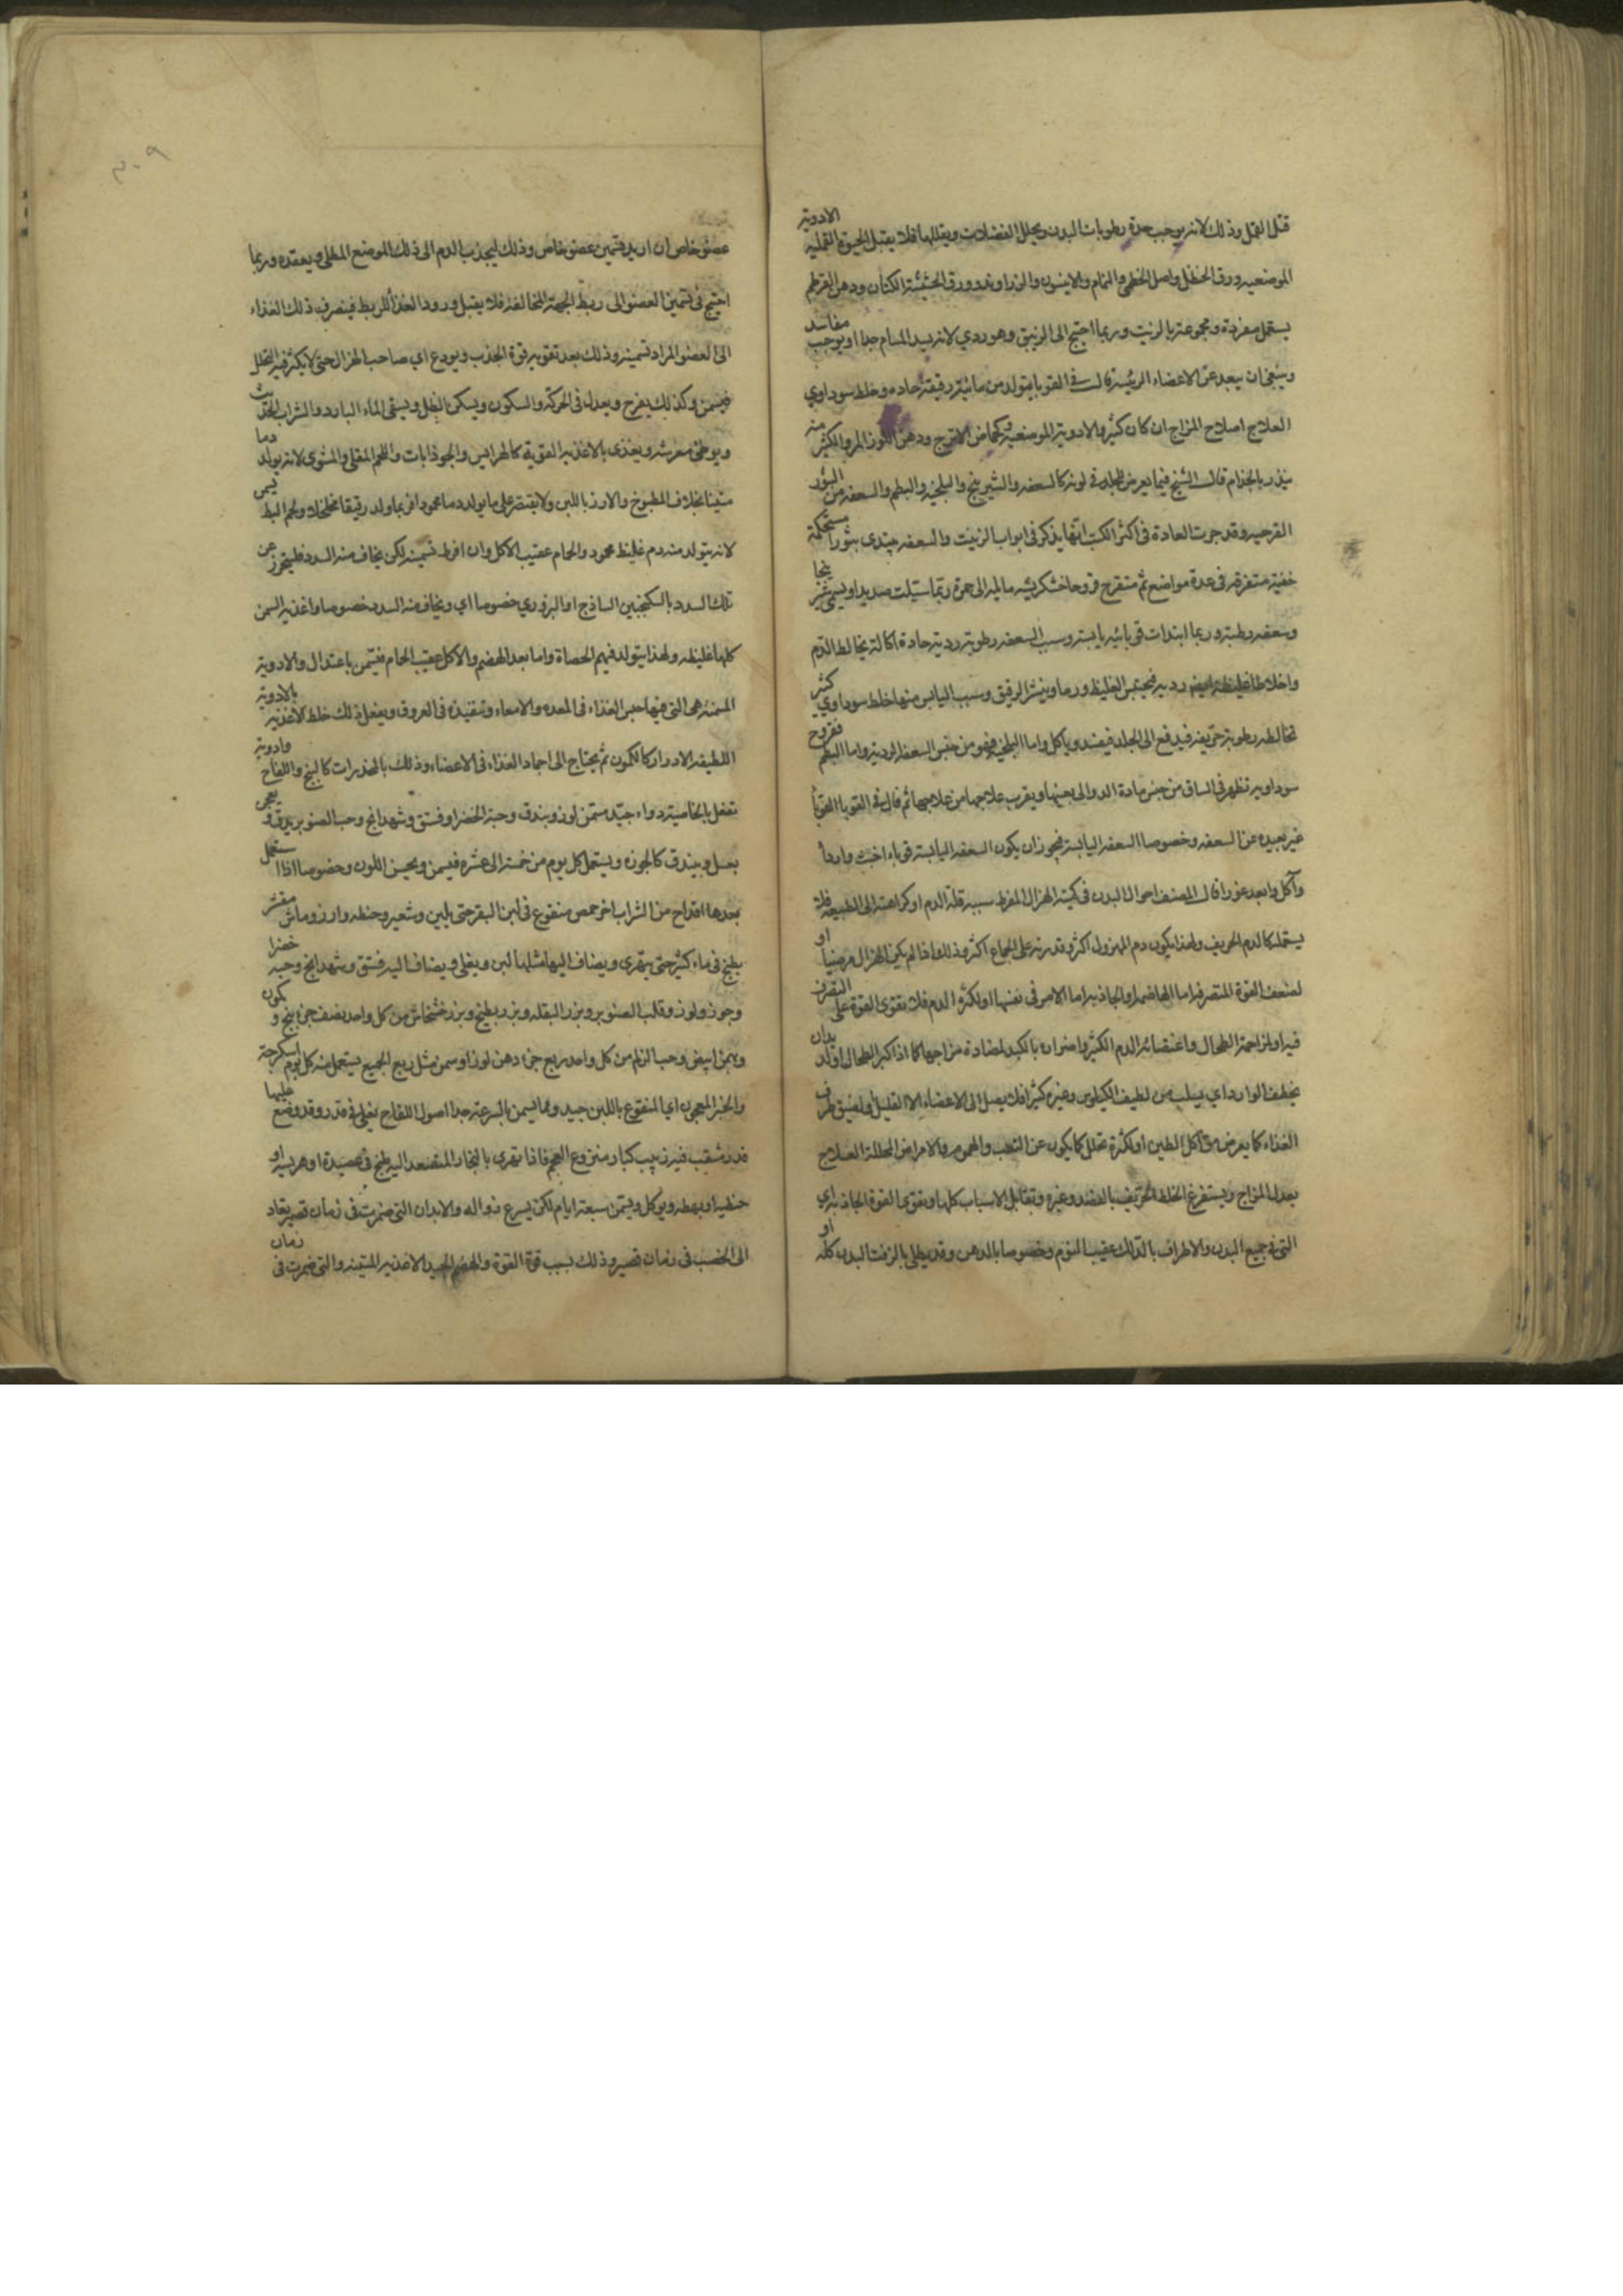 قتل القمل وذلك لانه يوجب حدة رطوبات البدن ويحلل الفضلات ويقللها فلا يقبل الحيوة القملية الادوية
الموضعية ورق الحنظل واصل الخطمى والنمام والانيسون والزراوند وورق الحشيشة الكتان ودهن القرطم
يستعمل مفردة ومجموعة بالزيت وربما احتيج الى الزيبق وهو ردي لانه يسد المسام جدا او يوجب مفاسد
وينبغى ان يبعد عن الاعضاء الرئيسة قال فى القوبا يتولد من مائية رقيقة حادة وخلط سوداوي
العلاج اصلاح المزاج ان كان كثير والادوية الموضعية كحماض الاترج ودهن اللوز المر والكثير منه
ينذر بالجذام قال الشيخ فيما يعرض للجلد فى لونه كالسعفه والشيرينج والبلخيه والبطم والسعفه من البثور
القرحيه وقد جرت العادة فى اكثر الكتب انها يذكر فى ابواب الزينت والسعفه يبتدى بثورا مستحكمة
خفية متفرقه فى عدة مواضع ثم متقرح قروحا خشكريشيه مايله الى حمرة ربما سيلت صديدا ويسمى شيرينجا
وسعفه رطبة وربما ابتدات قوبائيه يابسة وسبب السعفه رطوبة ردية حادة اكالة يخالط الدم
واخلاط غليظة ردية فيحتبس الغليظ ورما وينشر الرقيق وسبب اليابس منها خلط سوداوي كثير
تخالطه رطوبة حريفه فيدفع الى الجلد فيفسد وياكل واما البلخيه فهو من جنس السعفه الرديه واما البطم فقروح
سوداويه تظهر فى الساق من جنس مادة الدوالى بعينها ويقرب علاجها من علاجها ثم قال فى القوبا القوبا
غير بعيده عن السعفه وخصوصا السعفه اليابسة فيجوز ان يكون السعفه اليابسة قوباء اخبث واردأ
وآكل وابعد غورا قال المصنف احوال البدن فى كمية الهزال المفرط سببه قلة الدم او كراهته الى الطبيعه فلا
يستعمله كالدم الحريف ولهذا يكون دم المهزول اكثر وقدرته على الجماع اكثر وذلك اذا لم يكن الهزال مرضيا او
لضعف القوة المتصرفه اما الهاضمه او الجاذبه اما الامر فى نفسها او لكثرة الدم فلا تقوى القوة على التصرف
فيه او لمزاحمة الطحال واغتصابه الدم الكثير واضراره بالكبد لمضادة مزاجها كما اذا كبر الطحال او لديدان
يخطف الوارد اي يسلب من لطيف الكيلوس وغيره كثيرا فلا يصل الى الاعضاء الا القليل او لضيق طرق
الغذاء كما يعرض من اكل الطين او لكثرة تحلل كما يكون عن التعب والهموم والامراض المحللة العلاج
يعدل المزاج ويستفرغ الخلط الحريف بالفصد وغيره وتقابل الاسباب كلها ويقوى القوة الجاذبه اي
التى فى جميع البدن والاطراف بالدلك عقيب النوم وخصوصا بالدهن وقد يطلى بالزفت البدن كله او
عضو خاص ان اريد تسمين عضو خاص وذلك ليجذب الدم الى ذلك الموضع المطلى ويعقده وربما
احتيج فى تسمين العضو الى ربط الجهة المخالفه فلا يقبل ورود الغذا للربط فينصرف ذلك الغذاء
الى العضو المراد تسمينه وذلك بعد تقويه قوة الجذب ويودع اي صاحب الهزال حتى لا يكثر فيه التحلل
فيسمن وكذلك يفرح ويعدل فى الحركة والسكون ويسكن الظل ويسقى الماء البارد والشراب الحديث
ويوطئ مفرشه ويغذى بالاغذيه القوية كالهرايس والجوذابات واللحم المقلى والمشوى لانه يولد دما
متينا بخلاف المطبوخ والارز باللبن ولا يقتصر على ما يولد دما محمودا فربما ولد رقيقا متخلخلا ولحم البط يسمن
لانه يتولد منه دم غليظ محمود والحمام عقيب الاكل وان افرط تسمينه لكن يخاف منه السدد فليتحرز عن
تلك السدد بالسكنجبين الساذج او البزوري خصوصا اي ويخاف منه السدد خصوصا واغذيه السمن
كلها غليظه ولهذا يتولد فيهم الحصاة واما بعد الهضم والاكل عقيب الحمام فيسمن باعتدال والادوية
المسمنة هى التى فيها حبس الغذاء فى المعده والامعاء وتنفيذه فى العروق ويفعل ذلك خلط الاغذيه بالادوية
اللطيفه الادرار كالكمون ثم يحتاج الى اجماد الغذاء فى الاعضاء وذلك بالمخدرات كالبنج واللفاح وادوية
تفعل بالخاصيه دواء جيد مسمن لوز وبندق وحبة الخضرا وفستق وشهدانج وحب الصنوبر يدق ويعجن
بعسل ويبندق كالجوزه ويستعمل كل يوم من خمسة الى عشره فيسمن ويحسن اللون وخصوصا اذا استعمل
بعدها اقداح من الشراب اخر حمص منقوع فى لبن البقر حتى يلين وشعير وحنطه وارز وماش مقشر
يطبخ فى ماء كثير حتى يتهرى ويضاف اليها مثلها لبن ويغلى ويضاف اليه فستق وشهدانج وحبه خضرا
وجوز ولوز وقلب الصنوبر وبزر البقله وبزر بطيخ وبزر خشخاش من كل واحد نصف جزء بنج وكمون
وبهمن ابيض وحب الزلم من كل واحد ربع جزء دهن لوز او سمن مثل ربع الجميع يستعمل منه كل يوم اسكرجة
والخبز المعجون اي المنقوع باللبن جيد ومما يسمن بالسرعة جدا اصول اللفاح يغلى فى قدر وقد وضع عليها
قدر مثقب فيه زبيب كبار منزوع العجم فاذا تهرى بالبخار المتصعد اليه طبخ فى عصيدة او هريسه او
حنطيه او بهطه ويوكل ويسمن سبعة ايام لكن يسرع زواله والابدان التى ضمرت فى زمان قصير يعاد
الى الخصب فى زمان قصير وذلك بسبب قوة القوة والهضم الجيد الاغذيه المتينه والتى ضمرت فى زمان